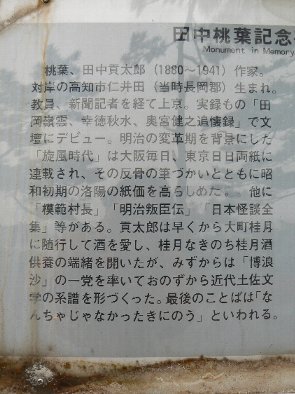 田中桃葉記念
Monument in Memory
桃葉、田中貢太郎（1880〜1941）作家。
対岸の高知市仁井田（当時長岡郡）生まれ。
教員、新聞記者を経て上京。実録もの「田
岡嶺雲、幸徳秋水、奥宮健之追懐録」で文
壇にデビュー。明治の変革期を背景にした
「旋風時代」は大阪毎日、東京日日両紙に
連載され、その反骨の筆づかいとともに昭
和初期の洛陽の紙価を高らしめた。 他に
「模範村長」「明治叛臣伝」「日本怪談全
集」等がある。貢太郎は早くから大町桂月
に随行して酒を愛し、桂月なきのち桂月酒
供養の端緒を開いたが、みずからは「博浪
沙」の一党を率いておのずから近代土佐文
学の系譜を形づくった。最後のことばは「な
んちゃじゃなかったきにのう」といわれる。